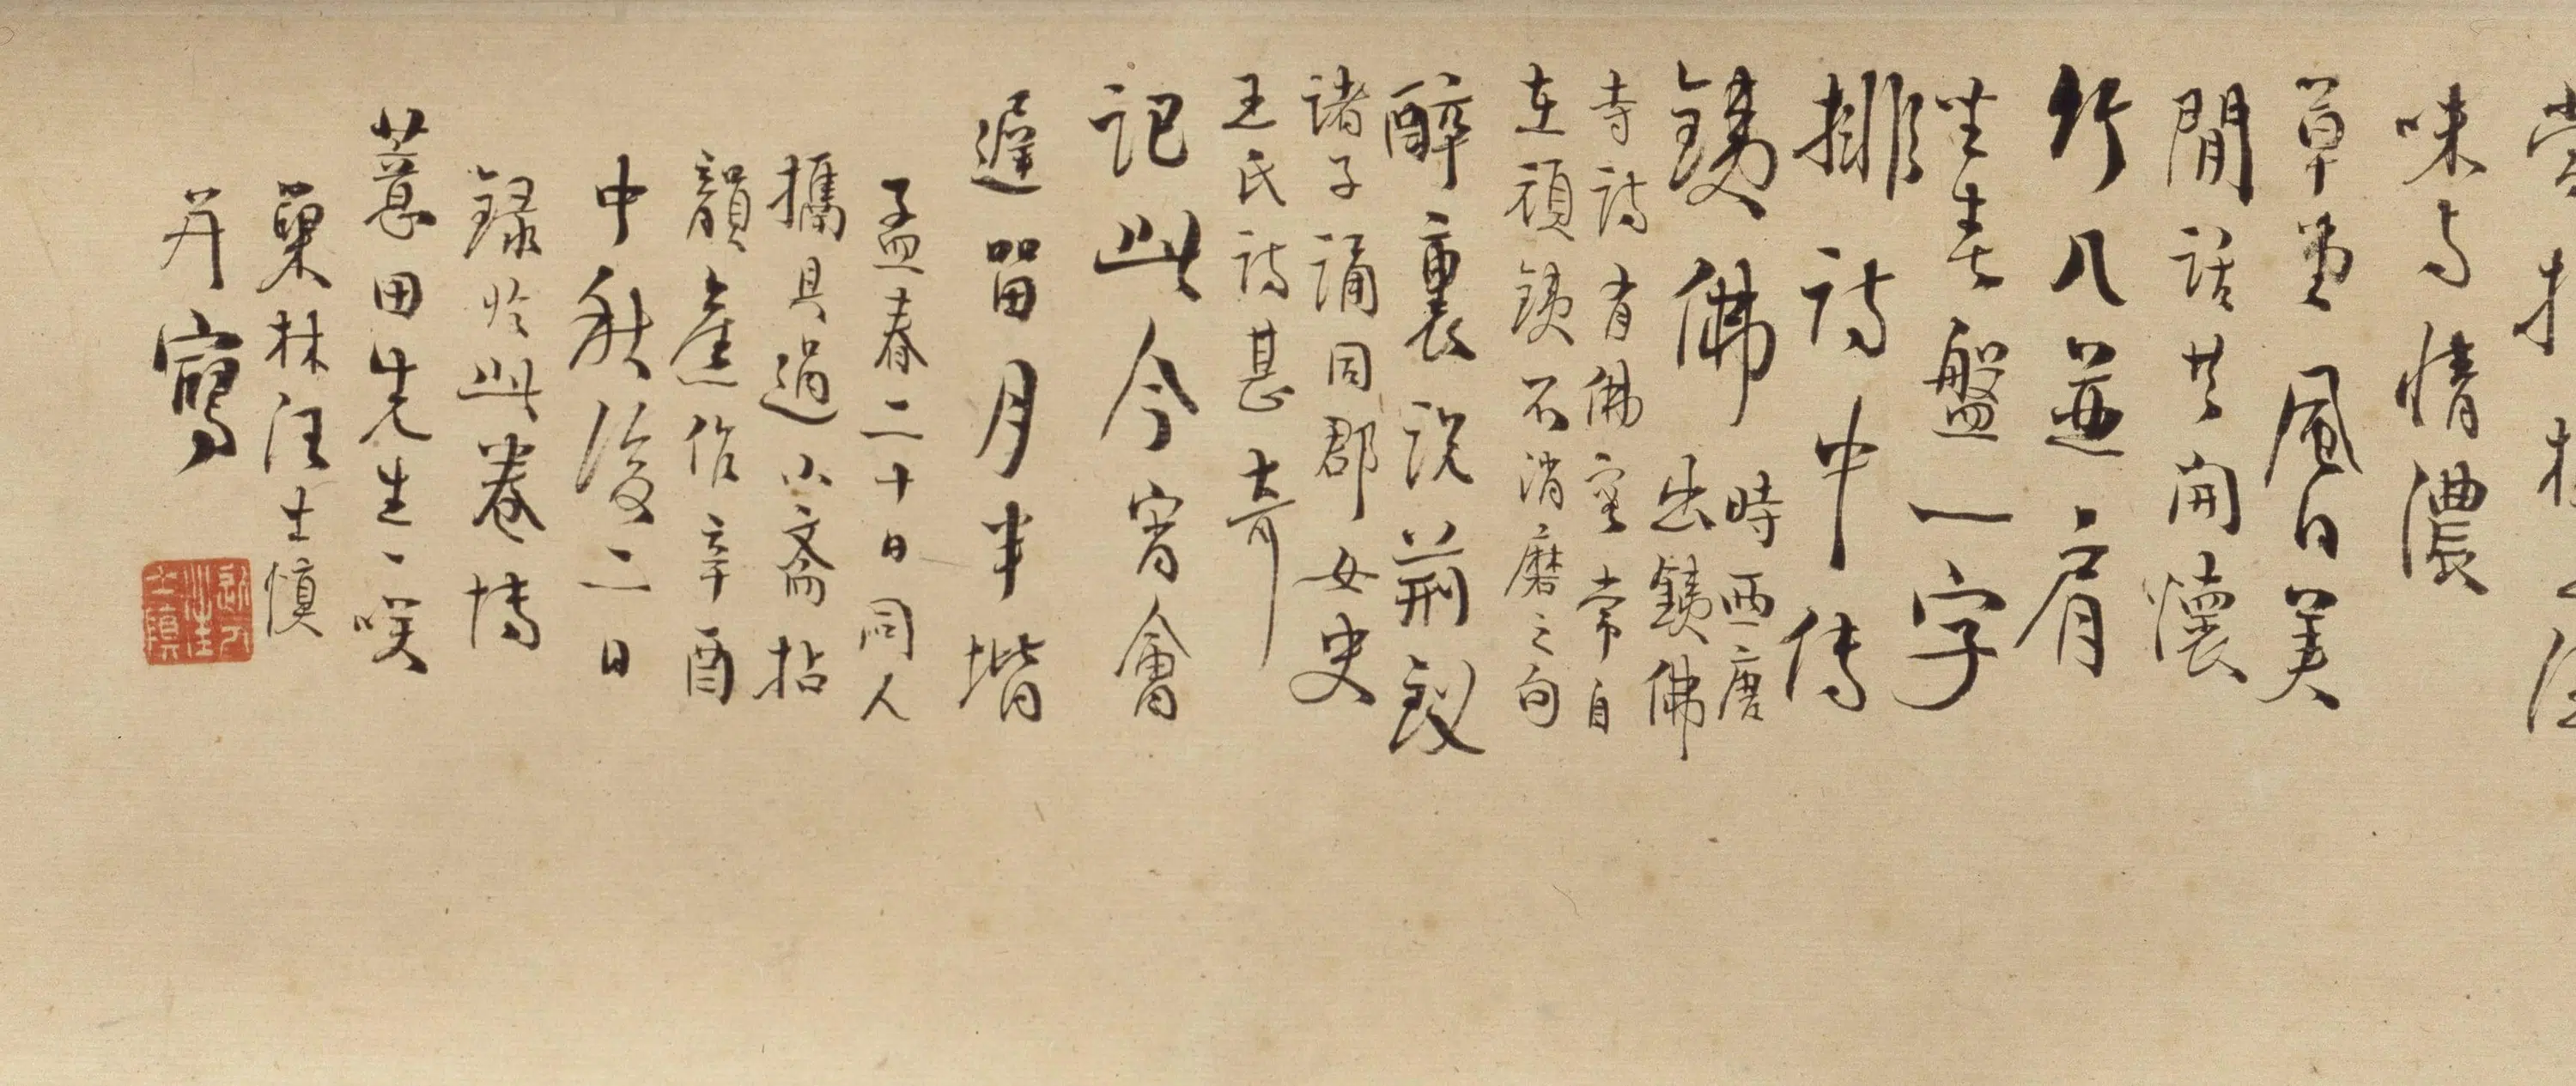 味與情濃
草堂風日美
閒話共開懷
竹几並肩
坐春盤一字
排詩中傳
鐵佛
時西唐
出鐵佛
寺詩有佛室常自
在頑鐵不消磨之句
醉裏說荊釵
諸子誦同郡女史
王氏詩甚奇
記此今宵會
遲留月半堦
孟春二十日同人
攜具過小齋拈
韻舊作辛酉
中秋後二日
錄於此卷博
薏田先生一笑
巢林汪士慎
并寫